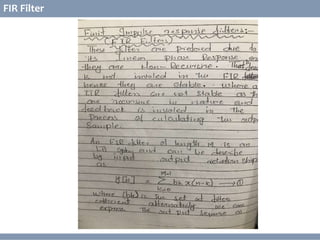 FIR Filter
Finit Impulse response filters:-
(FIR Filters)
These filter are prefered due to
its linear phase Response and
they are Non-Recursive. The
is not involed in the FIR filter
hence they are stable, where a
IIR filters are not stable as
are recursive in nature and
feedback is involved in the
process of calculating the output
Sample.
An FIR filter of length M is an
LTI system and can be describe
by input output relation ship
as
y[n] = Σ bk x(n-k) → ①
M-1
k=0
where (bk) is the set of filter
cofficient alternatively we can
express the out put response as